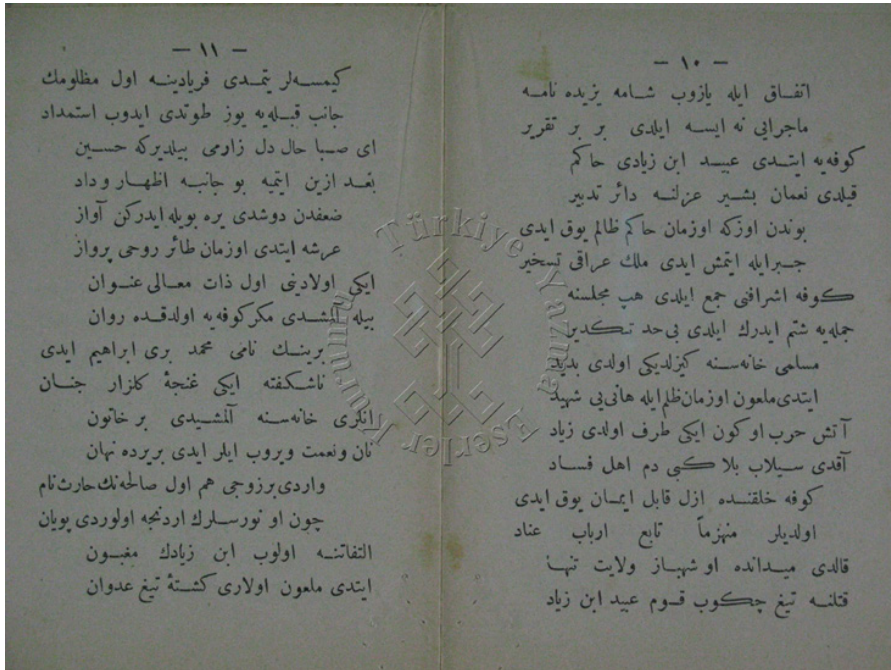 — ١٠ —
اتفاق ايله يازوب شامه يزيده نامه
ماجرايی نه ايسه ايلدی بر بر تقرير
كوفه‌يه ايتدی عبيد ابن زيادی حاكم
قيلدی نعمان بشير عزلنه دائر تدبير
بوندن اوزكه اوزمان حاكم ظالم يوق ايدی
جبرايله ايتمش ايدی ملك عراقی تسخير
كوفه اشرافنی جمع ايلدی هپ مجلسنه
جمله‌يه شتم ايدرك ايلدی بی حد تكدير
مسلمی خانه‌سنه كيزلديكی اولدی بديد
ايتدی ملعون اوزمان ظلم ايله هانی‌يی شهيد
آتش حرب او كون ايكی طرف اولدی زياد
آقدی سيلاب بلا كبی دم اهل فساد
كوفه خلقنده ازل قابل ايمان يوق ايدی
اولديلر منهزماً تابع ارباب عناد
قالدی ميدانده او شهباز ولايت تنها
قتلنه تيغ چكوب قوم عبيد ابن زياد
— ١١ —
كيمسه‌لر يتمدی فريادينه اول مظلومك
جانب قبله‌يه يوز طوتدی ايدوب استمداد
ای صبا حال دل زارمی بيلديركه حسين
بعد ازين ايتميه بو جانبه اظهار وداد
ضعفدن دوشدی يره بويله ايدركن آواز
عرشه ايتدی اوزمان طائر روحی پرواز
ايكی اولادينی اول ذات معالی عنوان
بيله آلمشدی مكر كوفه‌يه اولدقده روان
برينك نامی محمد بری ابراهيم ايدی
ناشكفته ايكی غنجهٔ كلزار جنان
انلری خانه‌سنه آلمشيدی بر خاتون
نان ونعمت ويروب ايلر ايدی بريرده نهان
واردی برزوجی هم اول صالحه‌نك حارث نام
چون او نورسلرك اردنجه اولوردی پويان
التفاتنه اولوب ابن زيادك مغبون
ايتدی ملعون اولاری كشتهٔ تيغ عدوان
Türkiye Yazma Eserler Kurumu